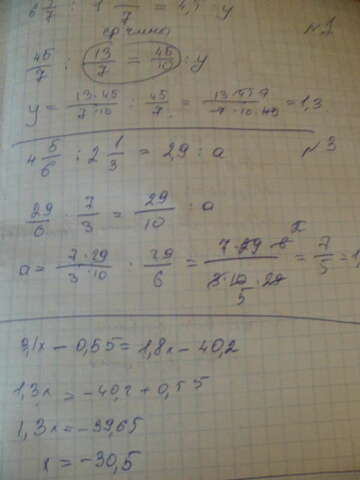 6 3/7 : 1 6/7 = 4,5 : y
N1
45/7 : 13/7 = 45/10 : y
y = 13·45/7·10 : 45/7 = 13·45·7/7·10·45 = 1,3
4 5/6 : 2 1/3 = 2,9 : a
N3
29/6 : 7/3 = 29/10 : a
a = 7·29/3·10 : 29/6 = 7·29·6 2/3·10·29 5 = 7/5 = 1,
3,1x - 0,55 = 1,8x - 40,2
1,3x = -40,2 + 0,55
1,3x = -39,65
x = -30,5